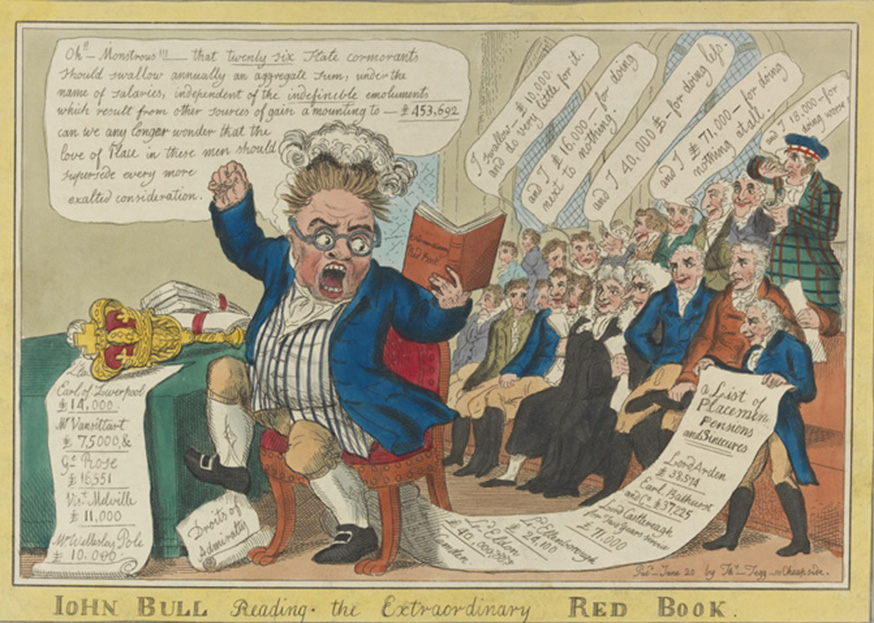 Oh!! — Monstrous!!! — that twenty six State cormorants
should swallow annually an aggregate Sum, under the
name of salaries, independent of the indefinible emoluments
which result from other sources of gain amounting to — £453,692
can we any longer wonder that the
love of Place in these men should
supersede every more
exalted consideration.
I Swallow — £10,000.
and do very little for it.
and I £16,000 — for doing
next to nothing!
and I 40,000 £ - for doing less.
and I £71,000 - for doing
nothing at all.
and I 18,000 - for
doing worse!
Extraordinary
Red Book
Earl of Liverpool
£14,000.
Mr Vansittart
£75000,&
Ge Rose
£16,551
Vist Melville
£11,000
Mr Wellesley Pole
£10.000
Droits of
Admiralty
a List of
Placemen
Pensions
and Sinecures
Lord Arden
£38,574
Earl Bathurst
and Co £37,225
Lord Castlereagh
for two Years Service
£71,000
Ld Ellenborough
£24,100
Ld Eldon
£40,000
Camden
Pubd — June 20 by Thos Tegg — 111 Cheapside.
IOHN BULL Reading the Extraordinary RED BOOK.